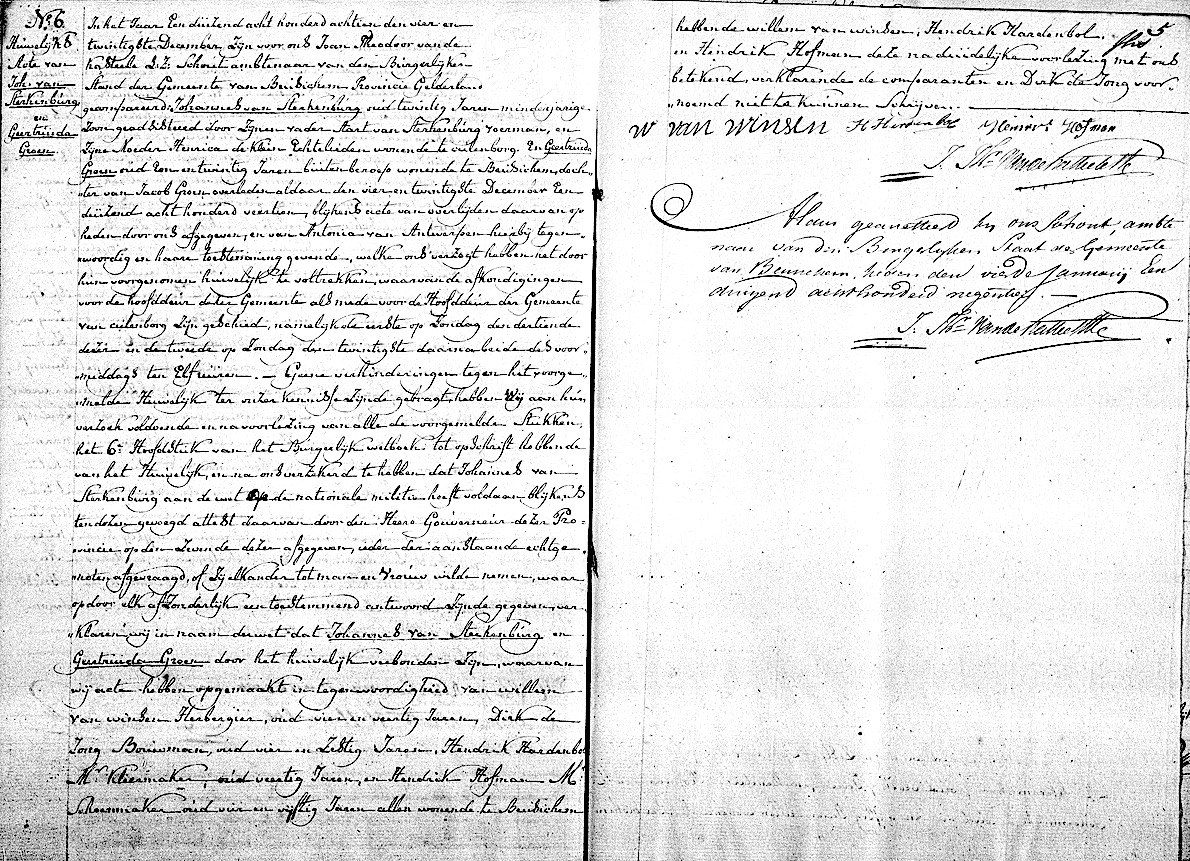 No. 6
Huwelijks
Acte van
Joh: van
Sterkenburg
en
Geertruida
Groen.
In het Jaar Een duizend acht honderd achtien den vier en
twintigste December, Zijn voor ons Joan Theodoor van de
Kasteele L.Z. Schout ambtenaar van den Burgerlijken
Stand der Gemeente van Beusichem Provincie Gelderland
gecompareerd: Johannes van Sterkenburg oud twintig Jaren minderjarige
Zoon geadsisteerd door Zijnen vader Aart van Sterkenburg voerman, en
Zijne Moeder Henrica de Klein Echtelieden wonende te cuilenborg. En Geertruida
Groen oud Een en twintig Jaren buiten beroep wonende te Beusichem, doch-
ter van Jacob Groen overleden aldaar den vier en twintigste December Een
duizend acht honderd veertien, blijkens acte van overlijden daarvan op
heden door ons afgegeven, en van Antonia van Antwerpen hierbij tegen-
"woordig en haare toestemming gevende, welke ons verzogt hebben het door
hun voorgenomen huwelijk te voltrekken, waarvan de afkondigingen
voor de hoofddeur dezer Gemeente als mede voor de Hoofddeur der Gemeente
van cuilenborg Zijn geschied, namelijk de eerste op Zondag den dertiende
dezer en de tweede op Zondag den twintigste daarna beide des voor-
"middags ten Elf uuren. — Geene verhinderingen tegen het voorge-
"melde Huwelijk ter onzer kennisse Zijnde gebragt, hebben Wij aan hun
verzoek voldoende en na voorlezing van alle de voorgemelde Stukken,
het 6e Hoofdstuk van het Burgerlijk wetboek tot opschrift hebbende
van het Huwelijk, en na ons verzekerd te hebben dat Johannes van
Sterkenburg aan de wet op de nationale militie heeft voldaan blijkens
ten dezen gevoegd attest daarvan door den Heere Gouverneur dezer Pro-
vincie op den Zevende dezer afgegeven, ieder der aanstaande echtge-
"noten afgevraagd, of Zij elkander tot man en Vrouw wilde nemen, waar
op door elk afzonderlijk een toestemmend antwoord Zijnde gegeven, ver-
"klaren wij in naam der wet dat Johannes van Sterkenburg en
Geertruida Groen door het huwelijk verbonden Zijn, waarvan
wij acte hebben opgemaakt in tegenwoordigheid van willem
van winsen Herbergier, oud vier en veertig Jaren, Dirk de
Jong Bouwman, oud vier en Zestig Jaren, Hendrik Hardenbol
Mr. Kleermaker, oud veertig Jaren, en Hendrik Hofman Mr.
Schoenmaker oud vier en vijftig Jaren allen wonende te Beusichem
5
hebbende willem van winsen, Hendrik Hardenbol
en Hendrik Hofman deze na duidelijke voorlezing met ons
betekend, verklarende de comparanten en Dirk de Jong voor-
"noemd niet te kunnen Schrijven.
W van Winsen H Hardenbol Hendrik Hofman
J. Thr. Van de Kasteele
Aldus gearresteerd bij ons Schout, ambte
naar van den Burgerlijken Staat der Gemeente
van Beusichem, heden den vierde Januarij Een
duizend achthonderd negentien. —
J. Thr. Van de Kasteele